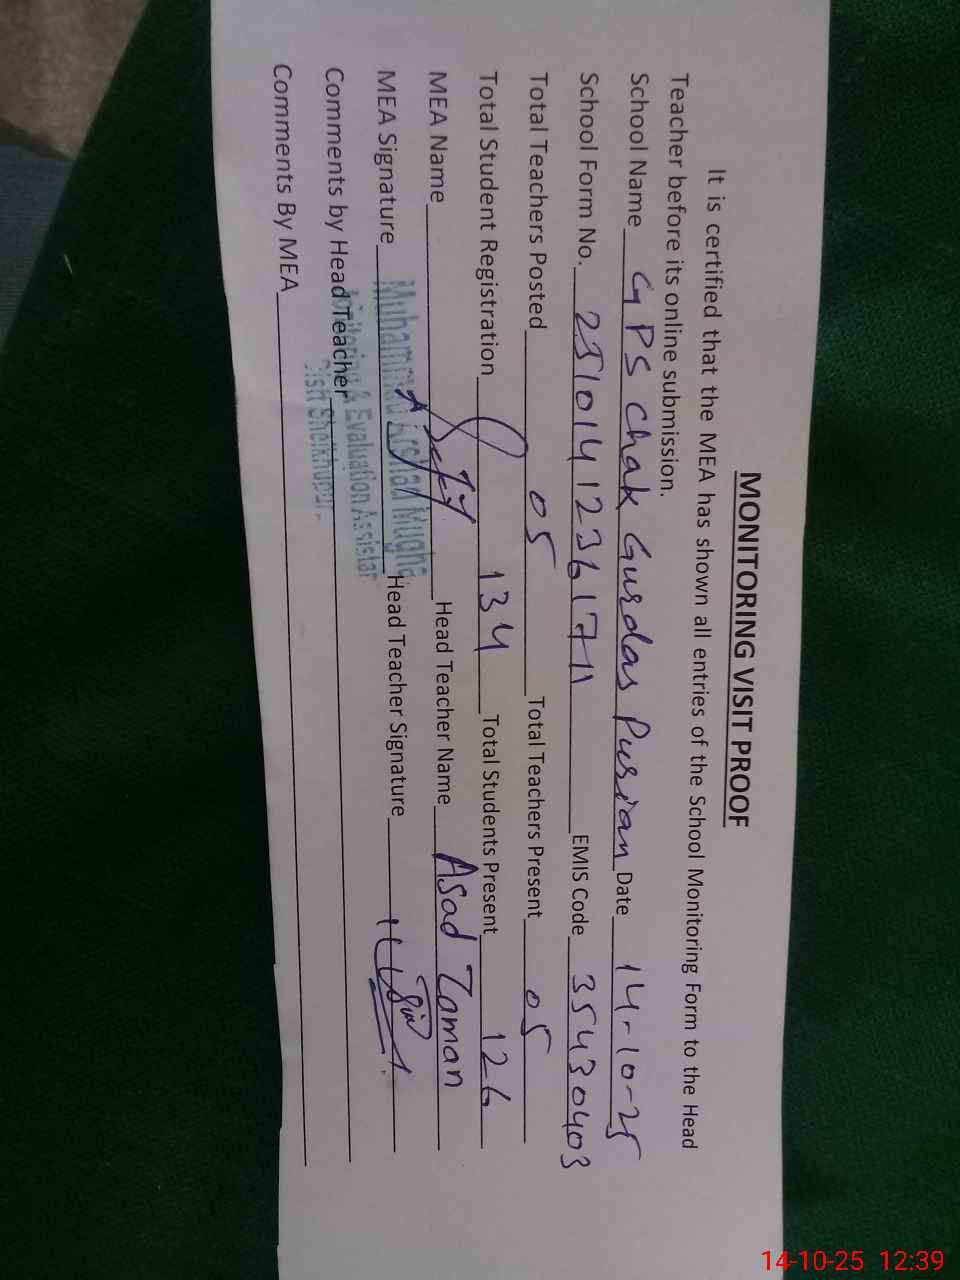 MONITORING VISIT PROOF
It is certified that the MEA has shown all entries of the School Monitoring Form to the Head
Teacher before its online submission.
School Name GPS Chak Gurdas Purian Date 14-10-25
School Form No. 25101412361711 EMIS Code 35430403
Total Teachers Posted 05 Total Teachers Present 05
Total Student Registration 134 Total Students Present 126
MEA Name Head Teacher Name Asad Zaman
MEA Signature Head Teacher Signature
Muhammad Arshad Mugha
Monitoring & Evaluation Assistan
Comments by Head Teacher
Comments By MEA
14-10-25 12:39